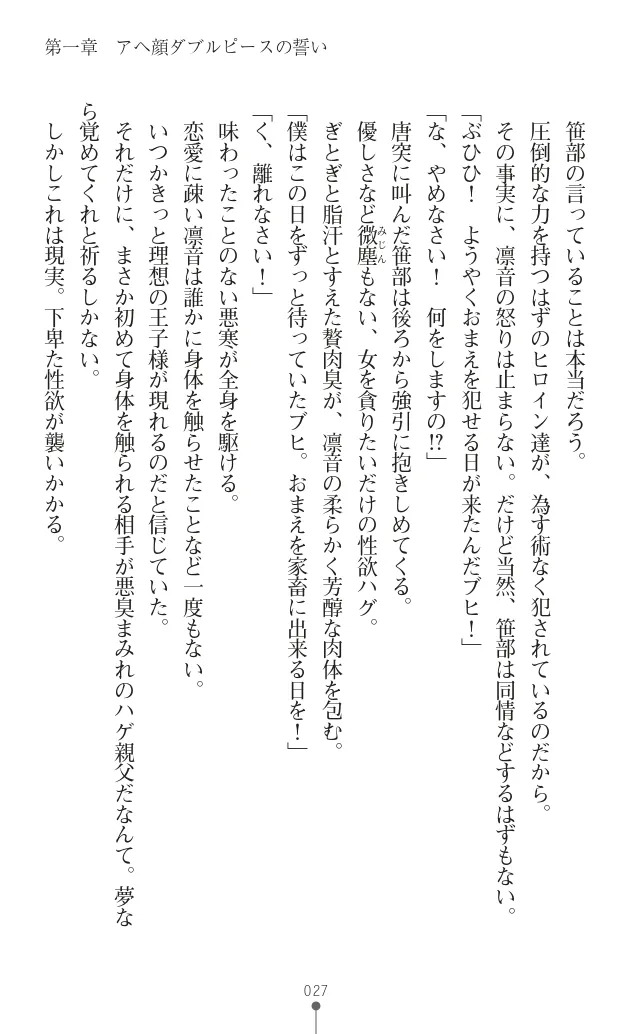 第一章　アヘ顔ダブルピースの誓い
笹部の言っていることは本当だろう。
圧倒的な力を持つはずのヒロイン達が、為す術なく犯されているのだから。
その事実に、凛音の怒りは止まらない。だけど当然、笹部は同情などするはずもない。
「ぶひひ！　ようやくおまえを犯せる日が来たんだブヒ！」
「な、やめなさい！　何をしますの!?」
唐突に叫んだ笹部は後ろから強引に抱きしめてくる。
優しさなど微塵もない、女を貪りたいだけの性欲ハグ。
みじん
ぎとぎと脂汗とすえた贅肉臭が、凛音の柔らかく芳醇な肉体を包む。
「僕はこの日をずっと待っていたブヒ。おまえを家畜に出来る日を！」
「く、離れなさい！」
味わったことのない悪寒が全身を駆ける。
恋愛に疎い凛音は誰かに身体を触らせたことなど一度もない。
いつかきっと理想の王子様が現れるのだと信じていた。
それだけに、まさか初めて身体を触られる相手が悪臭まみれのハゲ親父だなんて。夢な
ら覚めてくれと祈るしかない。
しかしこれは現実。下卑た性欲が襲いかかる。
027